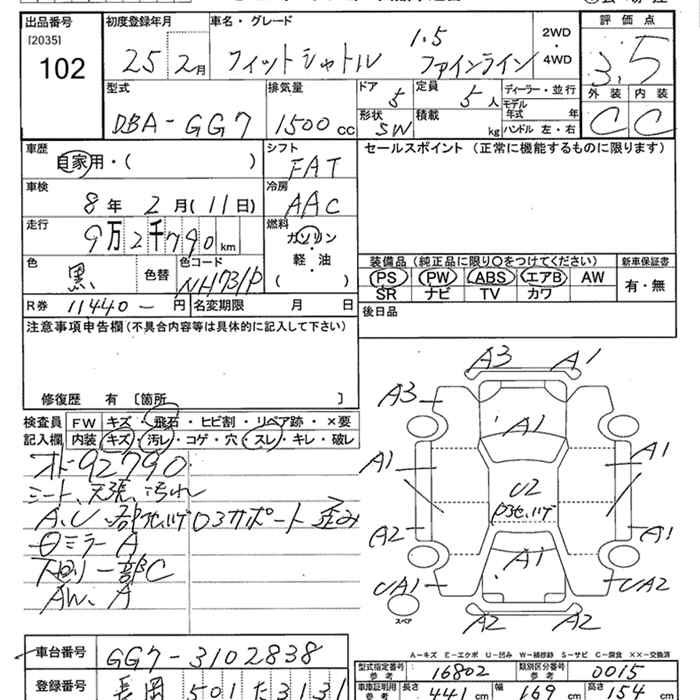 出品番号 初度登録年月 車名・グレード 評価点
[2035]
102
25 2月 フィットシャトル 1.5 ファインライン 2WD・4WD 3.5
外装 内装
C C
型式 排気量 ドア 定員 ディーラー・並行
DBA-GG7 1500cc 5 5人 モデル年式 年
形状 積載 ハンドル 左・右
SW kg
車歴 シフト セールスポイント (正常に機能するものに限ります)
自家用・( ) FAT
車検 冷房
8年 2月(11日) AAC
走行 燃料
9万2千790km ガソリン・軽・油
( )
色 色替 色コード
黒 NH731P
装備品 (純正品に限り○をつけてください) 新車保証書
PS PW ABS エアB AW 有・無
SR ナビ TV カワ
R券 11440-円 名変期限 月 日 後日品
注意事項申告欄(不具合内容等は具体的に記入して下さい)
修復歴 有 〔箇所 〕
検査員 FW キズ・飛石・ヒビ割・リペア跡・×要
記入欄 内装 キズ・汚レ・コゲ・穴・スレ・キレ・破レ
オド92790
シート、天張、汚れ
A.U.部地ハゲ ロアサポート歪み
ロミラーA
下回り一部C
AW、A
A3 A1
A3 A1
A1 A1
U2
A2 A1
A1
UA1 UA2
スペア
A2 A2
A-キズ E-エクボ U-凹み W-補修跡 S-サビ C-腐食 ××-交換済
車台番号 GG7-3102838
型式指定番号 参考 16802 類別区分番号 参考 0015
登録番号 長岡 501 た 3131
車庫証明用 参考 長さ 441cm 幅 169cm 高さ 154cm